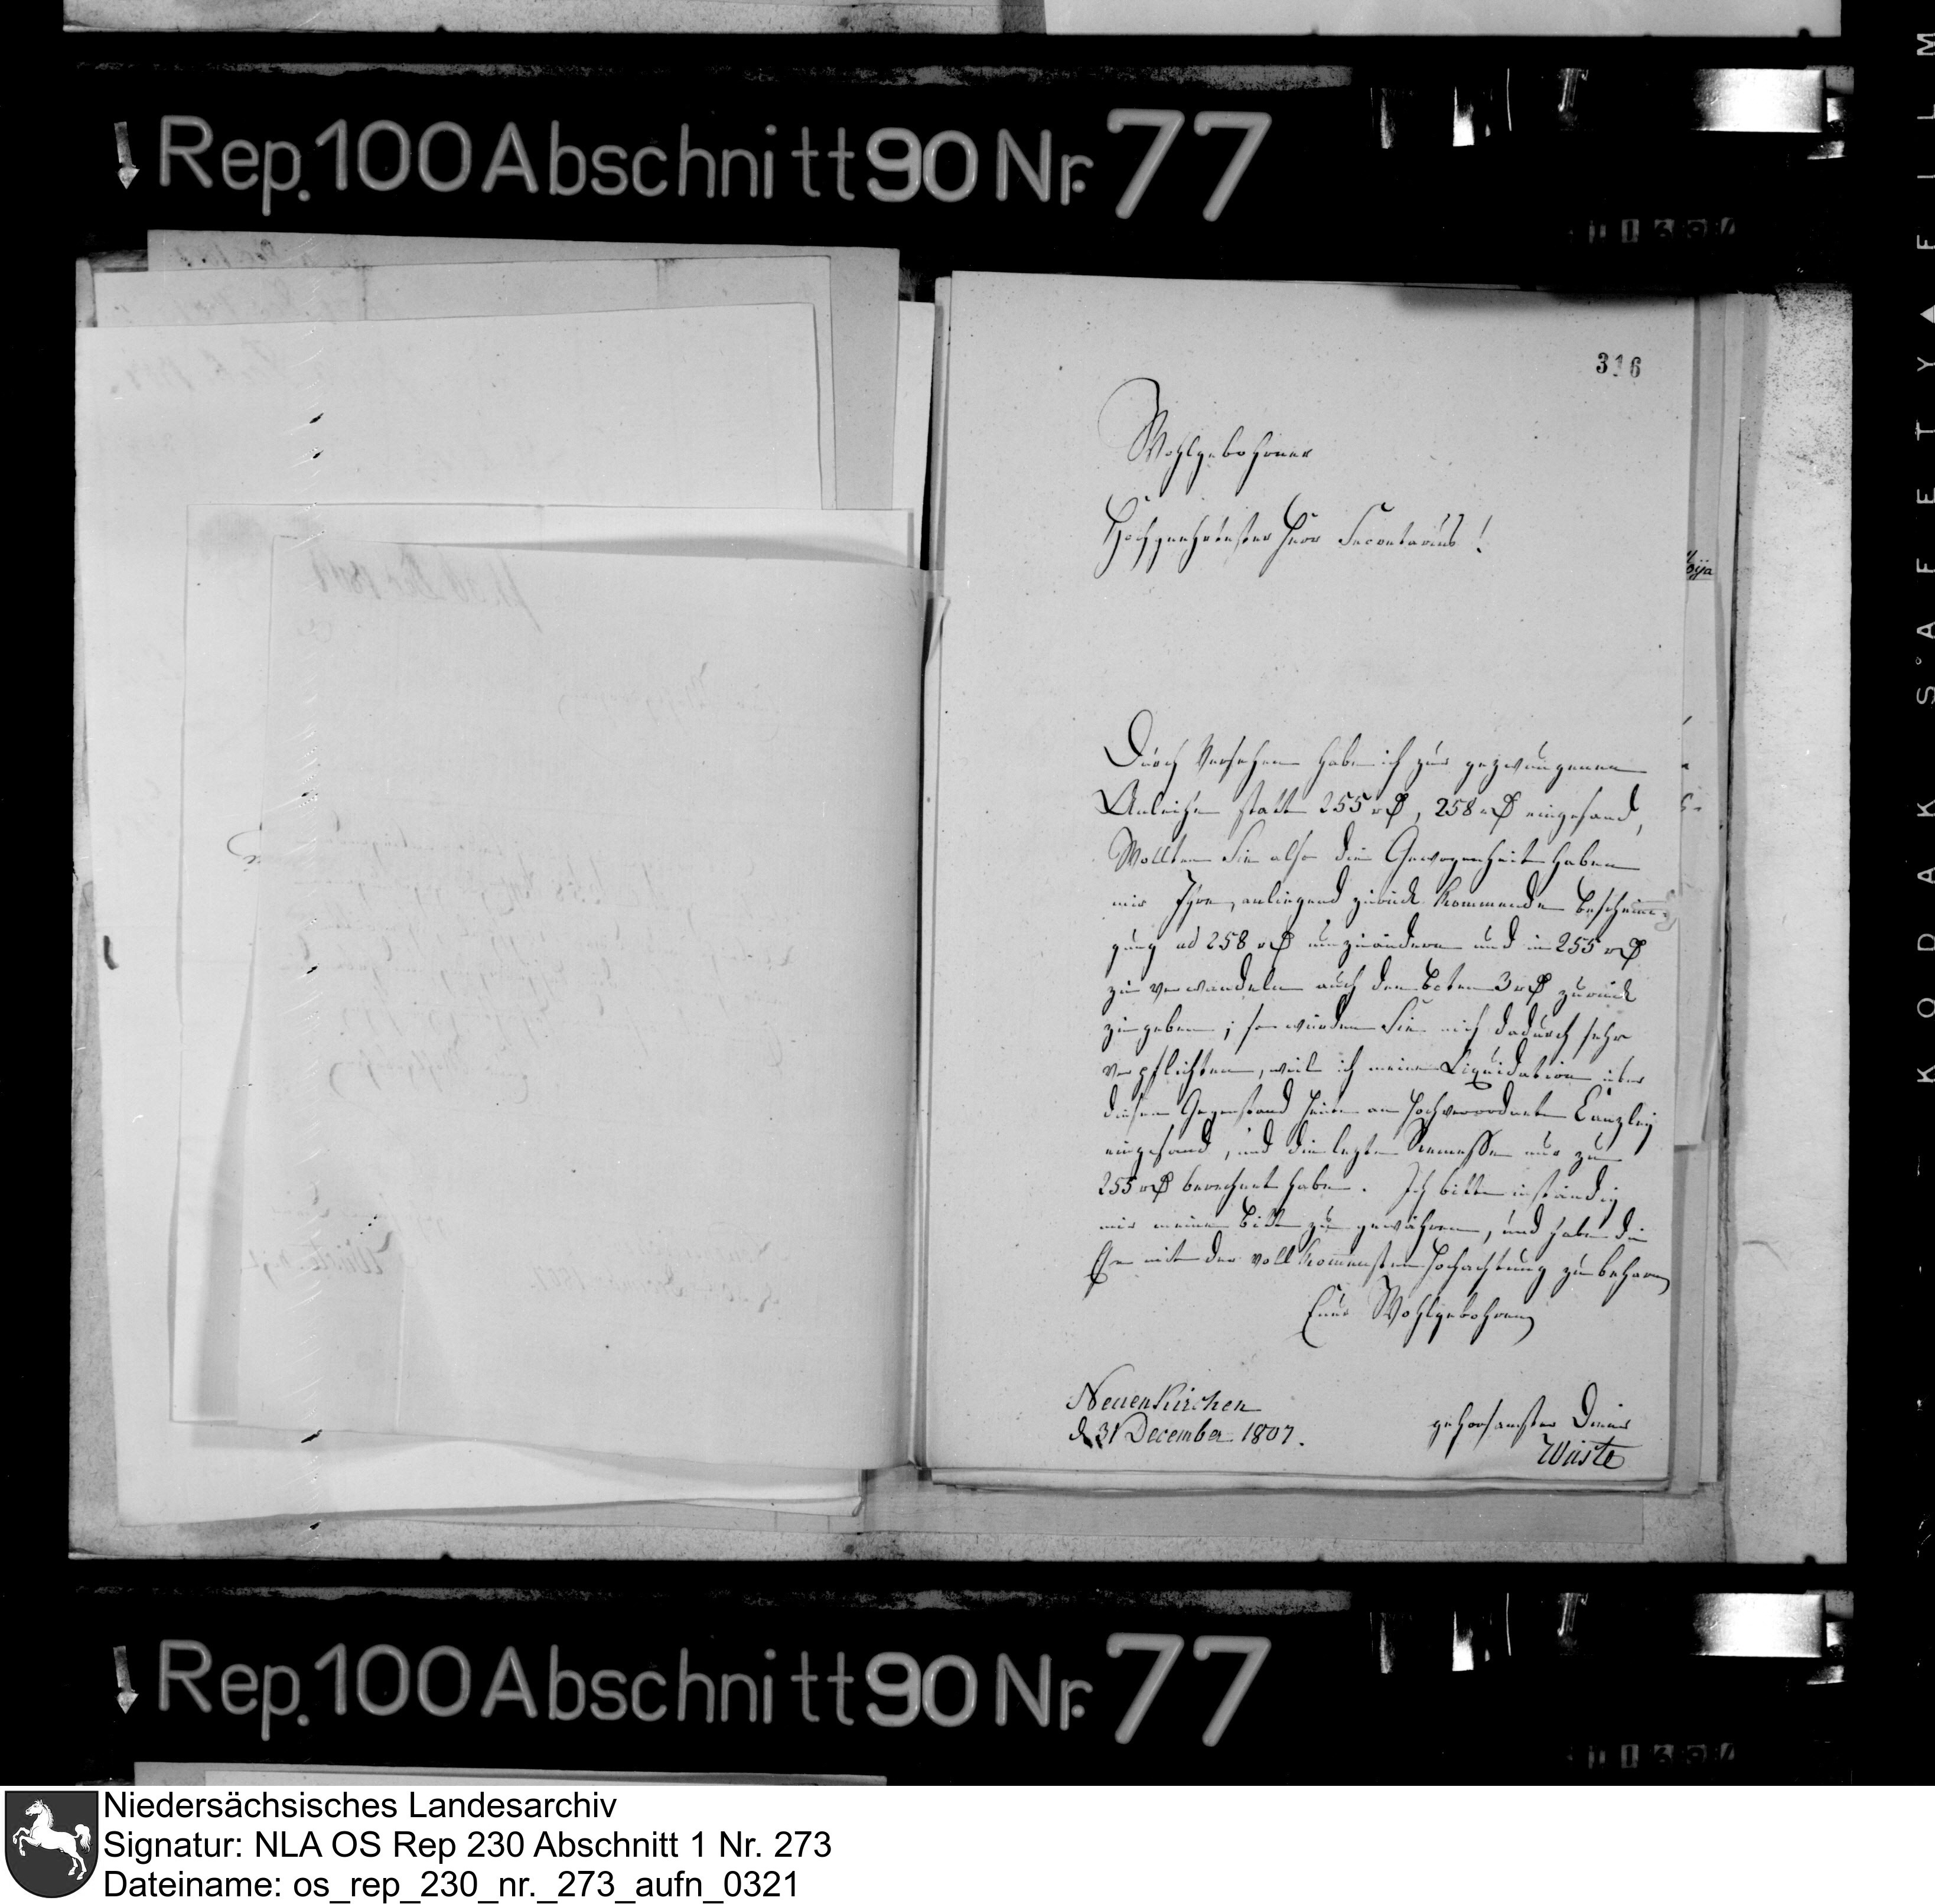 Rep. 100 Abschnitt 90 Nr. 77
316
Wohlgebohrner
Hochgeehrtester Herr Secretarius!
Durch Versehen habe ich zur gezwungenen
Anleihe statt 255 rθ, 258 rθ eingesand,
Wollten Sie also die Gewogenheit haben
mir Ihre, anliegend zurück kommende Bescheini-
gung ad 258 rθ umzuändern und in 255 rθ
zu verwandeln auch dem Boten 3 rθ zurück
zu geben; so würden Sie mich dadurch sehr
verpflichten, weil ich meine Liquidation über
diesen Gegenstand heute an Hochverordnete Canzley
eingesand, und die lezte Remesse nur zu
255 rθ berechnet habe. Ich bitte inständig
mir meine Bitte zu gewähren, und habe die
Ehre mit der vollkommensten Hochachtung zu beharren
Euer Wohlgebohren
Neuenkirchen
d. 31 December 1807.
gehorsamster Diener
Wüste
Rep. 100 Abschnitt 90 Nr. 77
KODAK SAFETY FILM
Niedersächsisches Landesarchiv
Signatur: NLA OS Rep 230 Abschnitt 1 Nr. 273
Dateiname: os_rep_230_nr._273_aufn_0321